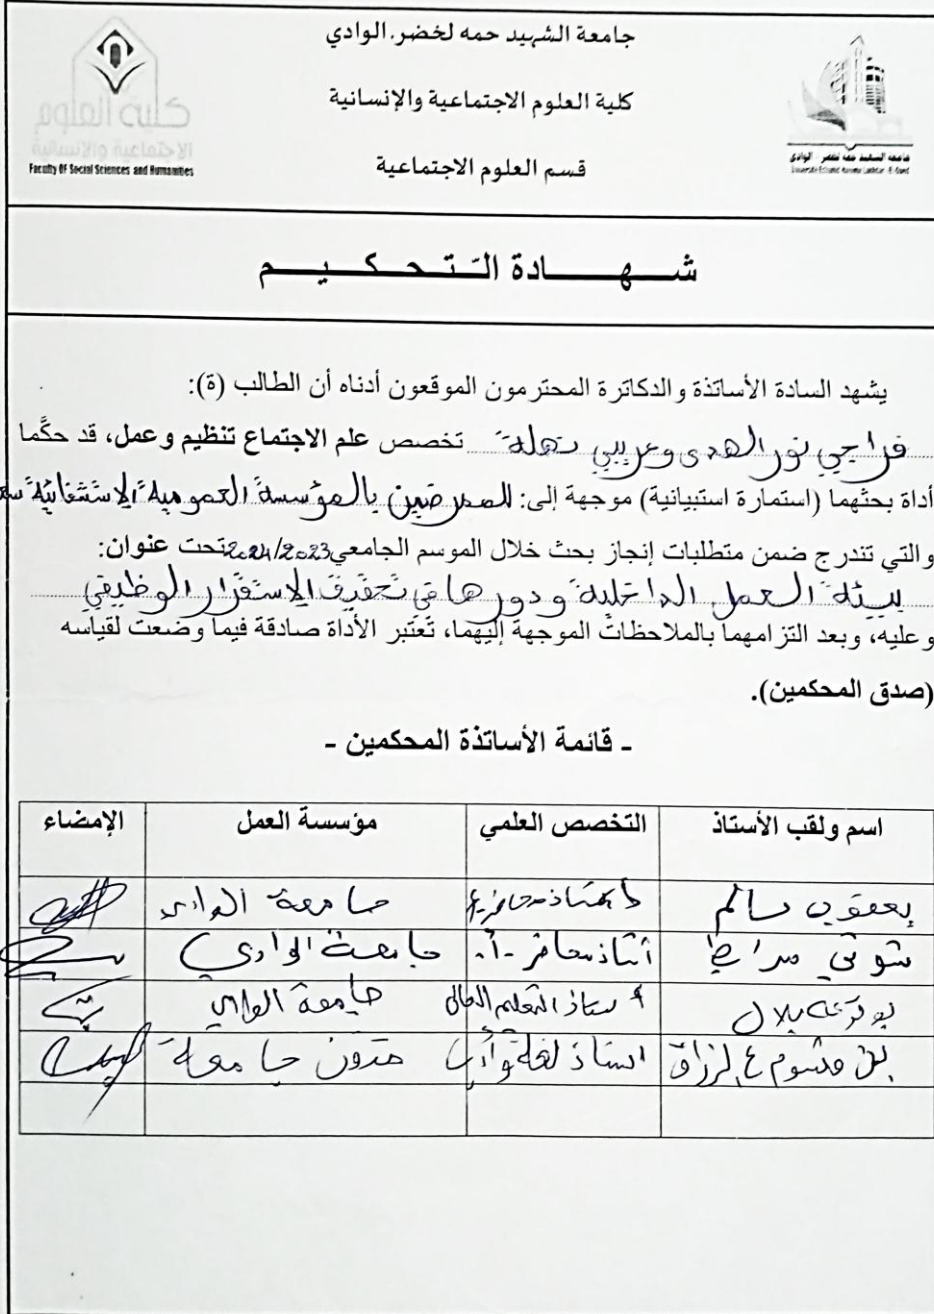 جامعة الشهيد حمه لخضر.الوادي
كلية العلوم الاجتماعية والإنسانية
قسم العلوم الاجتماعية
جامعة الشهيد حمه لخضر - الوادي
كلية العلوم
الاجتماعية والإنسانية
Faculty Of Social Sciences and Humanities
شهادة التحكيم
يشهد السادة الأساتذة والدكاترة المحترمون الموقعون أدناه أن الطالب (ة):
فراجي نور الهدى وعريبي نهلة تخصص علم الاجتماع تنظيم وعمل، قد حكَّما
أداة بحثهما (استمارة استبيانية) موجهة إلى: للممرضين بالمؤسسة العمومية الإستشفائية
والتي تندرج ضمن متطلبات إنجاز بحث خلال الموسم الجامعي 2024/2023 تحت عنوان:
بيئة العمل الداخلية ودورها في تحقيق الاستقرار الوظيفي
وعليه، وبعد التزامهما بالملاحظات الموجهة إليهما، تعتبر الأداة صادقة فيما وضعت لقياسه
(صدق المحكمين).
- قائمة الأساتذة المحكمين -
اسم ولقب الأستاذ التخصص العلمي مؤسسة العمل الإمضاء
يعقوب سالم أستاذ محاضر جامعة الوادي
شوقي مرابط أستاذ محاضر -أ- جامعة الوادي
بلال أستاذ التعليم العالي جامعة الوادي
بن ع الرزاق استاذ لغة وأدب جامعة